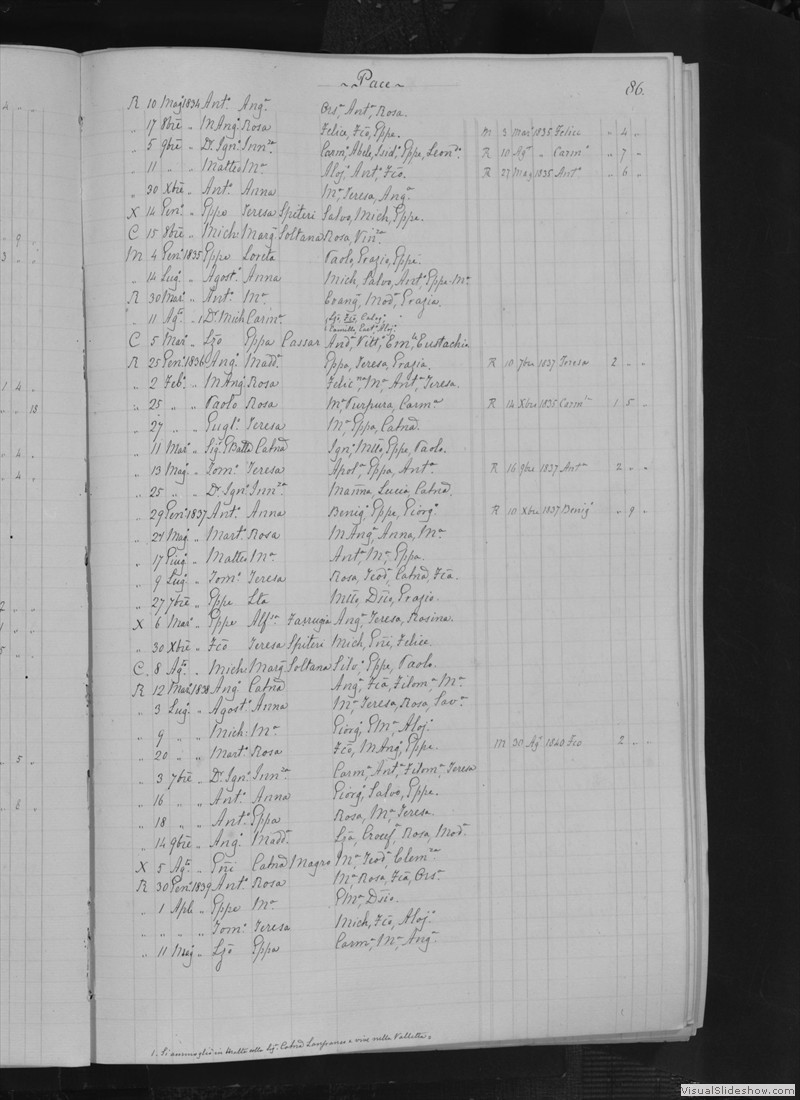 ~ Pace ~
86.
R 10 Mag. 1834 Antº Angª Orsª, Antª, Rosa.
„ 17 8bre „ M Angº Rosa Felice, Fcõ, Eppe. M 3 Marº 1835 Felice „ 4 „
„ 5 9bre „ Dr. Ignº Innza Carmº, Abele, Isidº, Eppe, Leonda. R 10 Agº „ Carmº „ 7 „
„ 11 „ „ Matteo Mª Aloj. Antº, Fcõ. R 27 Mag 1835 Antº „ 6 „
„ 30 Xbre „ Antº Anna Mª, Teresa, Angª
X 14 Genº „ Eppe Teresa Spiteri Salvo, Mich, Eppa.
C 15 8bre „ Mich Margª Soltana Rosa, Vinza
M 4 Genº 1835 Eppe Loreta Paolo, Grazio, Eppe.
„ 14 Lugº „ Agostº Anna Mich, Salvo, Antº, Eppe-Mª
R 30 Marº „ Antº Mª Evangª, Modª, Grazia.
„ 11 Agº „ 1 Dr. Mich Carmª Fcõ, Calogº
Camillo, Eustº, Aloj.
C 5 Marº „ Lzõ Eppa Cassar Andª, Vittª, Emla, Eustachia
R 25 Genº 1836 Angº Maddª Eppa, Teresa, Grazia. R 10 7bre 1837 Teresa 2 „ „
„ 2 Febº „ M Angº Rosa Felicna, Mª, Antª, Teresa.
„ 25 „ „ Paolo Rosa Mª Purpura, Carmª R 14 Xbre 1835 Carmna 1 5 „
„ 27 „ „ Guglº Teresa Mª, Eppa, Catnã.
„ 11 Marº „ Sigr. GBatta Catnã Ignº, Mttõ, Eppe, Paolo.
„ 13 Mag. „ Tomº Teresa Apolª, Eppa, Antª R 16 9bre 1837 Antª 2 „ „
„ 25 „ „ Dr. Ignº Innza Mañna, Lucia, Catnã.
„ 29 Genº 1837 Antº Anna Benigº, Eppe, Giorgº R 10 Xbre 1837 Benigº „ 9 „
„ 24 Mag. „ Martº Rosa M Angº, Anna, Mª
„ 17 Giugº „ Matteo Mª Antª, Mª, Eppa.
„ 9 Lugº „ Tomº Teresa Rosa, Teodª, Catnã, Fcã.
„ 27 7bre „ Eppe Lta Mttõ, Dñco, Grazio.
X 6 Marº „ Eppe Alfsa Farrugia Angª, Teresa, Rosina.
„ 30 Xbre „ Fcõ Teresa Spiteri Mich, Gñi, Felice.
C. 8 Agº „ Mich Margª Soltana Silvº, Eppe, Paolo.
R 12 Marº 1838 Angº Catnã Angª, Fcã, Filomª, Mª
„ 3 Lugº „ Agostº Anna Mª, Teresa, Rosa, Savª
„ 9 „ „ Mich: Mª Giorgº, GMª, Aloj.
„ 20 „ „ Martº Rosa Fcõ, M Angº, Eppe. M 30 Agº 1840 Fcõ 2 „ „
„ 3 7bre „ Dr. Ignº Innza Carmª, Antª, Filomª, Teresa
„ 16 „ „ Antº Anna Giorgº, Salvo, Eppe.
„ 18 „ „ Antº Eppa Rosa, Mª, Teresa.
„ 14 9bre „ Angº Maddª Lzã, Crocefª, Rosa, Modª
X 5 Agº „ Gñi Catnã Magro Mª, Teodª, Clemza
R 30 Genº 1839 Antº Rosa Mª, Rosa, Fcã, Orsª
„ 1 Aple „ Eppe Mª GMª, Dñco.
„ „ „ „ Tomº Teresa Mich, Fcõ, Aloj.
„ 11 Mag „ Lzõ Eppa Carmª, Mª, Angª
1. Si ammogliò in Malta colla Sigª Catnã Lanfranco e vive nella Valletta.
VisualSlideshow.com